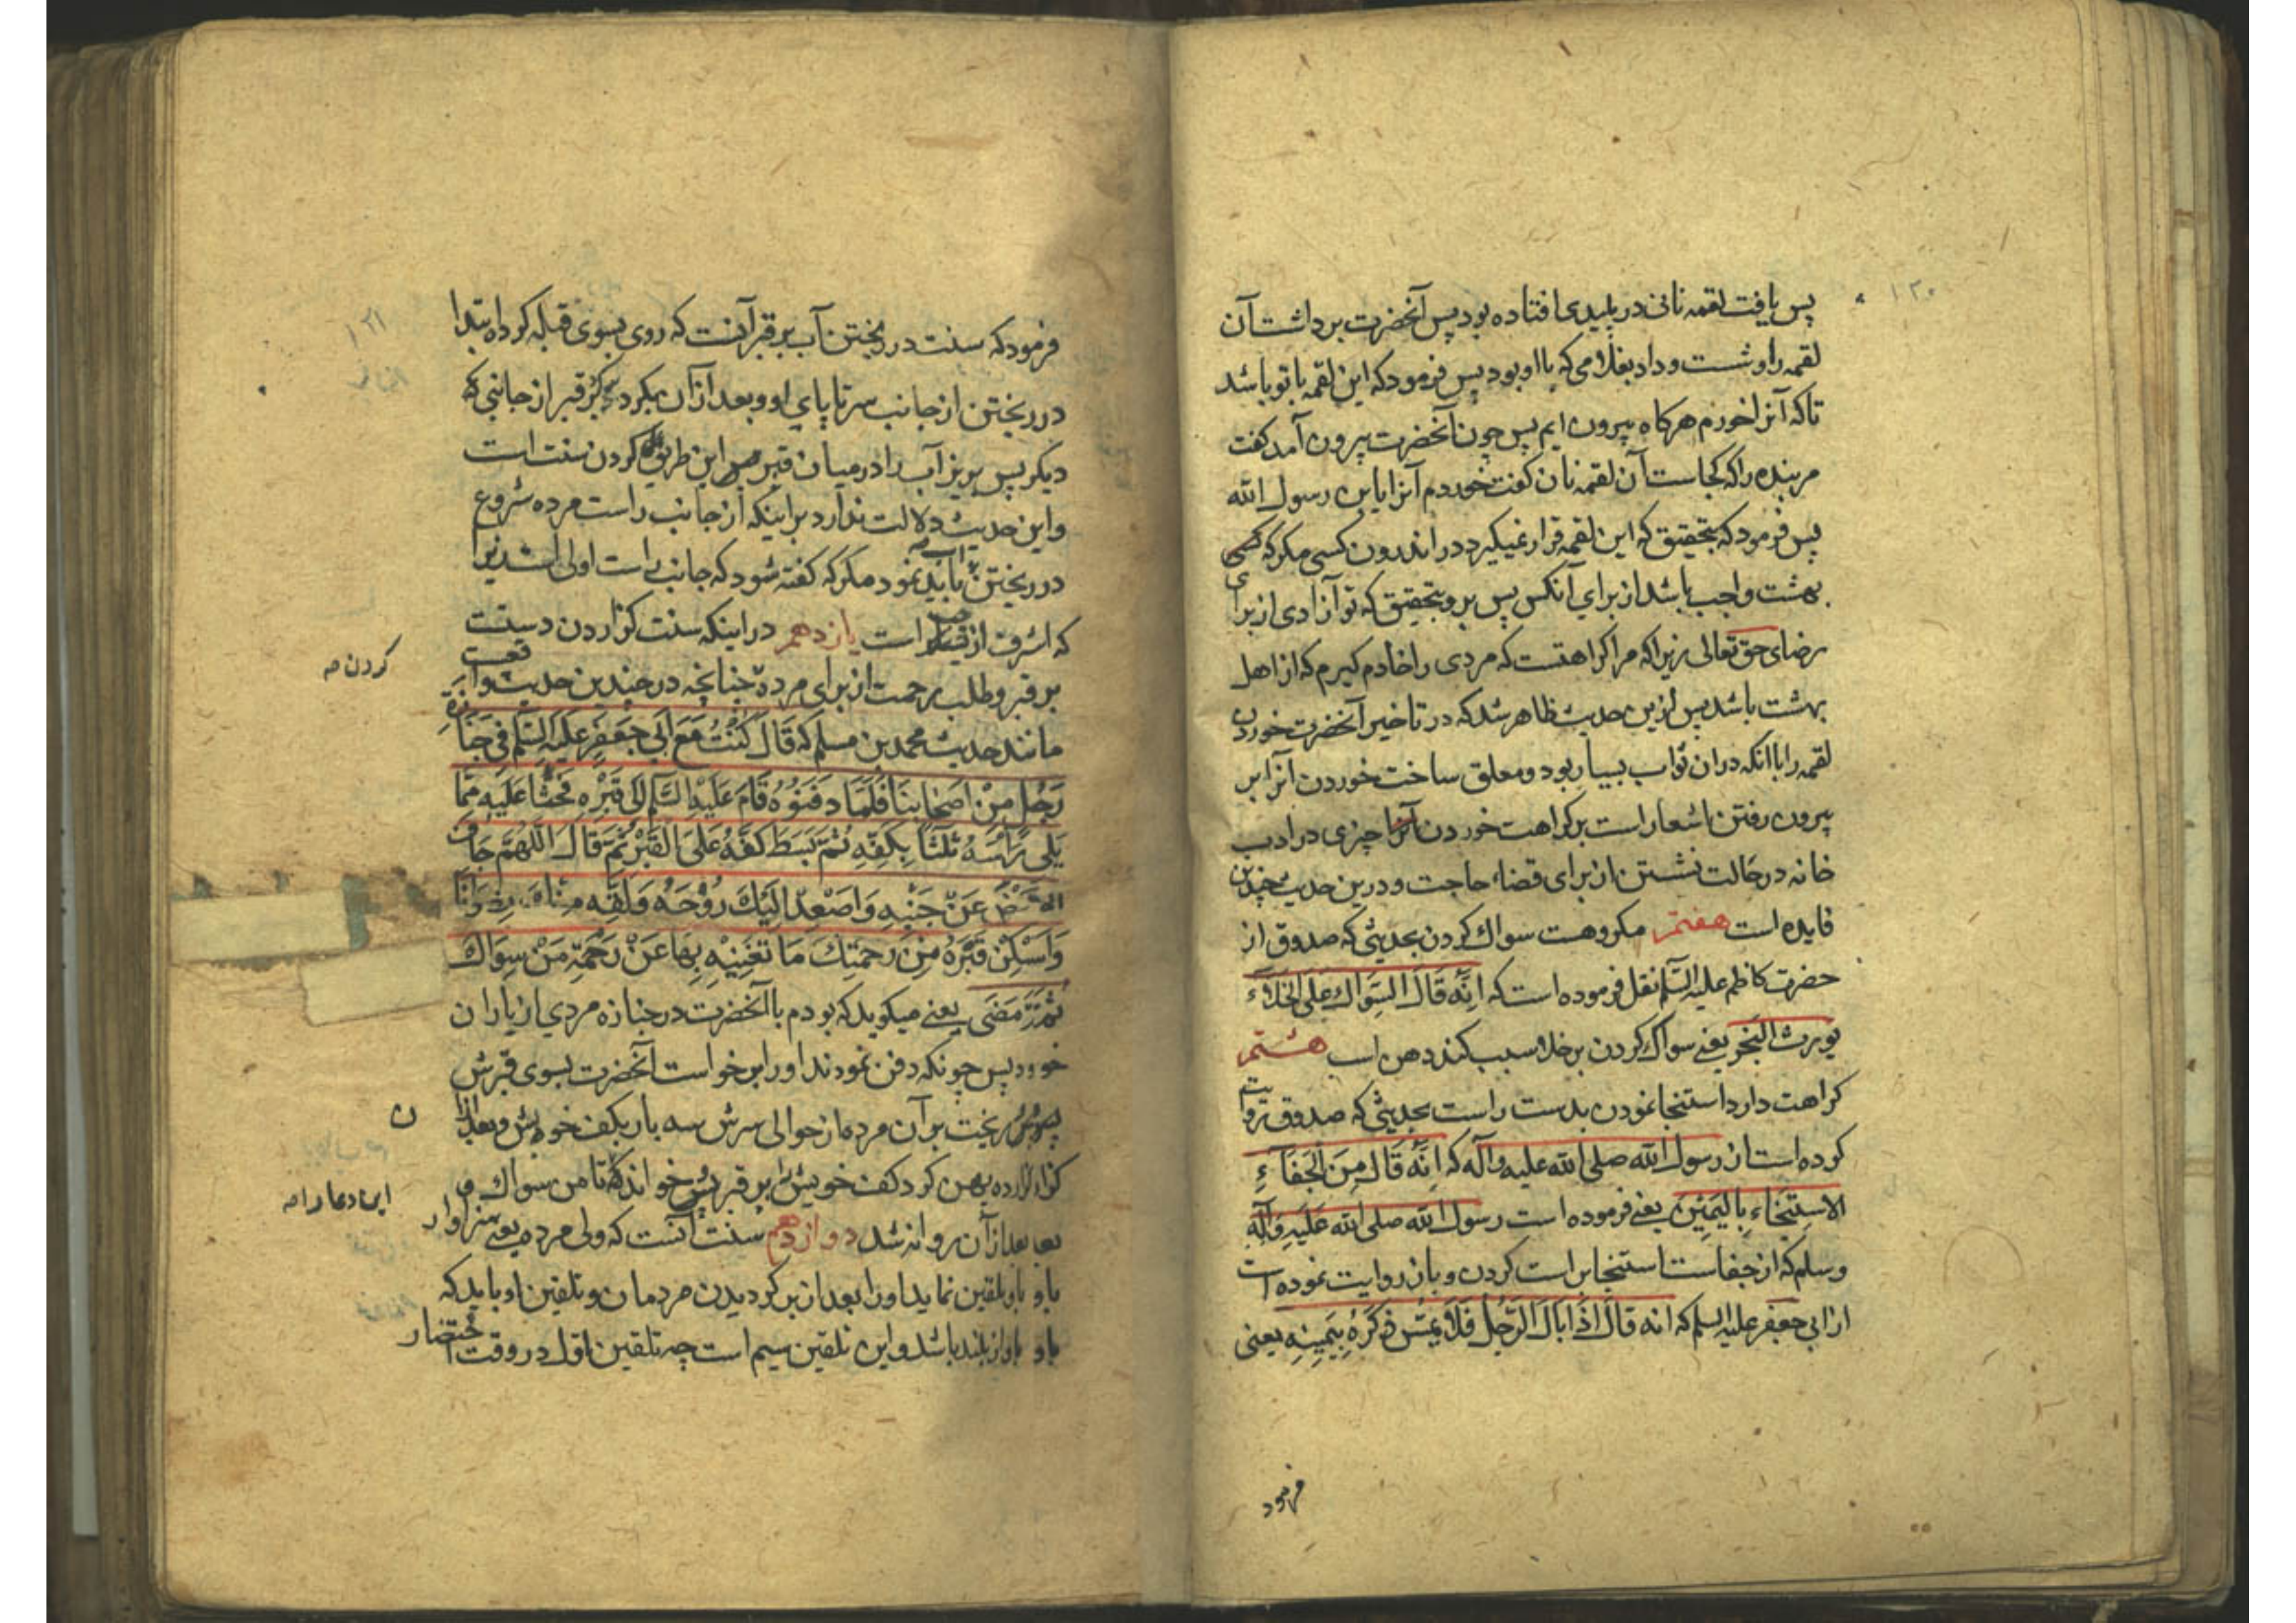 ۱۲۰
پس یافت لقمه نانی در پلیدی افتاده بود پس آنخضرت برداشت آن
لقمه را و شست و داد بغلامی که با او بود پس فرمود که این لقمه با تو باشد
تا که آنرا خورم هرکاه بیرون ایم پس چون آنخضرت بیرون آمد کفت
مر بنده را که کجاست آن لقمه نان کفت خوردم آنرا یابن رسول الله
پس فرمود که بتحقیق که این لقمه قرار نمیکیرد در اندرون کسی مکر که
بهشت واجب باشد از برای آنکس پس برو بتحقیق که تو آزادی از برای
رضای حق تعالی زیرا که مرا کراهتست که مردی را خادم کیرم که از اهل
بهشت باشد پس ازین حدیث ظاهر شد که در تاخیر آنحضرت خوردن
لقمه را با آنکه در ان ثواب بسیار بود و معلق ساخت خوردن آنرا بر
بیرون رفتن اشعار است بر کراهت خوردن چیزی در ادب
خانه در حالت نشستن از برای قضاء حاجت و درین حدیث چندین
فایده است هفتم مکروهست سواك کردن بحدیثی که صدوق از
حضرت کاظم علیه السّلم نقل فرموده است که انّه قالَ السِّوَاك عَلَی الخَلاءِ
یورث البَخَر یعنے سواك کردن بر خلا سبب کند دهن اسب هشتم
کراهت دارد استنجا نمودن بدست راست بحدیثی که صدوق روایت
کرده است از رسول الله صلی الله علیه و آله که انّه قالَ مِنَ الجَفَاءِ
الاستنجَاءِ بِالیَمینَ یعنے فرموده است رسول الله صلی الله عَلَیهِ وَآلِهِ
وسلم که از جفاست استنجا براست کردن و باز روایت نموده است
از ابی جعفر علیه السلم که انه قالَ اذَا بَالَ الرّجُل فَلاَ یَمسّ ذکَرَهُ بِیَمِینِهِ یعنی
فرمود
۱۲۱
فرمود که سنت در ریختن آب بر قبر آنست که روی بسوی قبله کرد ابتدا
در ریختن از جانب سر تا پای او و بعد از آن بکرد قبر از جانبی که
دیکر پس بریز آب را در میان قبر این طریق کردن سنت است
و این حدیث دلالت ندارد براینکه از جانب راست مرده شروع
در ریختن آب باید نمود مکر که کفته شود که جانب راست اولی باشد زیرا
که اشرف از است یازدهم در اینکه سنت کزاردن دستست
بر قبر و طلب رحمت از برای مرده چنانچه در چندین حدیث واقعست
کردن صه
مانند حدیث محمد بن مسلم که قَالَ کُنتُ مَعَ اَبی جَعفَرٍ عَلَیهِ السّلم فی جَنَازَةِ
رَجُلٍ مِنْ اَصحَابِنَا فَلَمّا دَفَنُوهُ قَامَ عَلَیْهِ السّلم اِلی قَبْرِه فَحَثَا عَلَیهِ مِمّا
یَلِی رَاسَهُ ثَلثاً بِکَفّهِ ثُمّ بَسَطَ کَفّهُ عَلَی القَبْرِ ثُمّ قَالَ اللّهُمّ جَافِ
الارض عَنْ جَنبَیهِ وَاصعِد اِلَیْكَ رُوْحَهُ وَلَقّهِ مِنْكَ رِضوَانَا
وَاسْکِن قَبْرَهُ مِنْ رَحمَتِكَ مَا تُغنِیْهِ بِهَا عَنْ رَحْمَةِ مَنْ سِوَاكَ
ثُمّ مَضَی یعنے میکوید که بودم با آنخضرت در جنازه مردی از یاران
خود پس چونکه دفن نمودند او را برخواست آنخضرت بسوی قبرش
ریخت بر آن مرده از حوالی سرش سه بار بکف خویش و بعد از
ن
پهن کرد کف خویش را بر قبر پس خواند تا من سواك و
این دعا را صه
بعد از آن روانه شد دوازدهم سنت آنست که ولی مرده یعنے سزاوار
باو تلقین نماید او را بعد از برکردیدن مردمان و تلقین او باید که
باواز بلند باشد و این تلقین سیم است چه تلقین اول در وقت احتضار